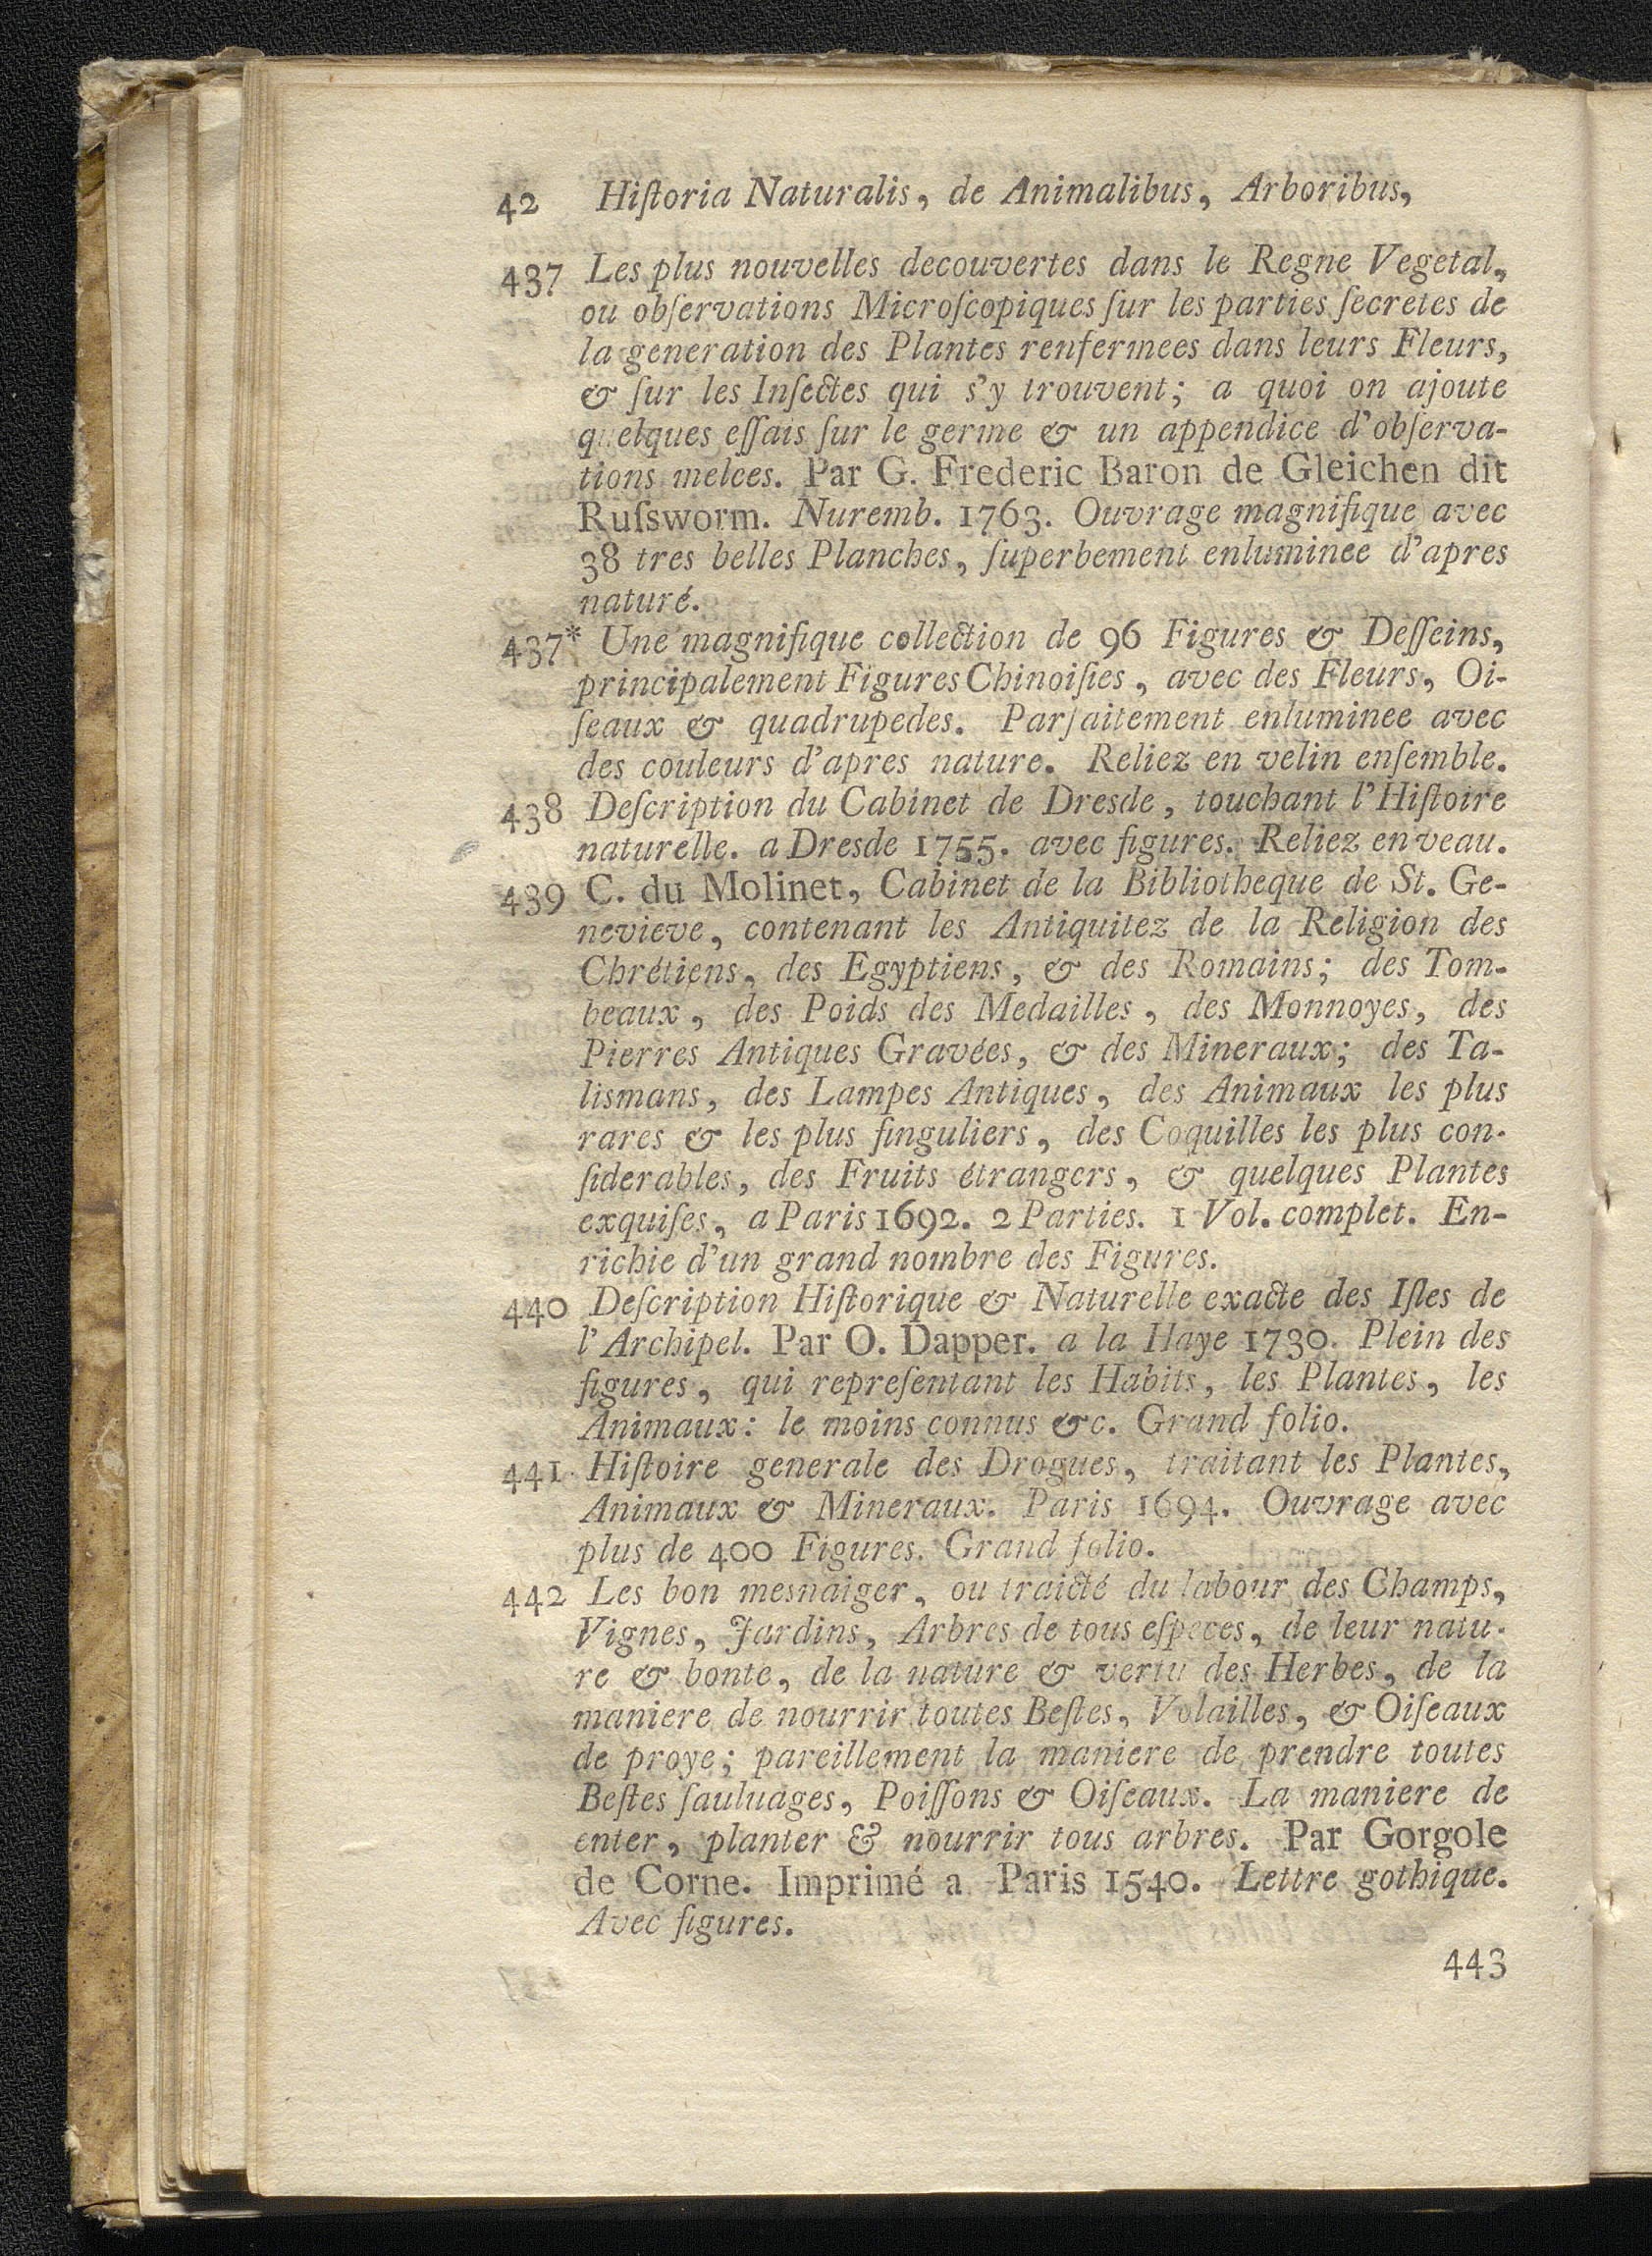 42 Hiſtoria Naturalis, de Animalibus, Arboribus,
437 Les plus nouvelles decouvertes dans le Regne Vegetal,
ou obſervations Microſcopiques ſur les parties ſecretes de
la generation des Plantes renfermees dans leurs Fleurs,
& ſur les Inſectes qui s'y trouvent; a quoi on ajoute
quelques eſſais ſur le germe & un appendice d'obſerva-
tions melces. Par G. Frederic Baron de Gleichen dit
Ruſsworm. Nuremb. 1763. Ouvrage magnifique avec
38 tres belles Planches, ſuperbement enluminee d'apres
naturé.
437* Une magnifique collection de 96 Figures & Deſſeins,
principalement Figures Chinoiſies, avec des Fleurs, Oi-
ſeaux & quadrupedes. Parfaitement enluminee avec
des couleurs d'apres nature. Reliez en velin enſemble.
438 Deſcription du Cabinet de Dresde, touchant l'Hiſtoire
naturelle. a Dresde 1755. avec figures. Reliez en veau.
439 C. du Molinet, Cabinet de la Bibliotheque de St. Ge-
nevieve, contenant les Antiquitez de la Religion des
Chrétiens, des Egyptiens, & des Romains; des Tom-
beaux, des Poids des Medailles, des Monnoyes, des
Pierres Antiques Gravées, & des Mineraux; des Ta-
lismans, des Lampes Antiques, des Animaux les plus
rares & les plus ſinguliers, des Coquilles les plus con-
ſiderables, des Fruits étrangers, & quelques Plantes
exquiſes, a Paris 1692. 2 Parties. 1 Vol. complet. En-
richie d'un grand nombre des Figures.
440 Deſcription Hiſtorique & Naturelle exacte des Iſles de
l'Archipel. Par O. Dapper. a la Haye 1730. Plein des
figures, qui repreſentant les Habits, les Plantes, les
Animaux: le moins connus &c. Grand folio.
441 Hiſtoire generale des Drogues, traitant les Plantes,
Animaux & Mineraux. Paris 1694. Ouvrage avec
plus de 400 Figures. Grand folio.
442 Les bon mesnaiger, ou traicté du labour des Champs,
Vignes, Jardins, Arbres de tous eſpeces, de leur natu-
re & bonte, de la nature & vertu des Herbes, de la
maniere de nourrir toutes Beſtes, Volailles, & Oiſeaux
de proye; pareillement la maniere de prendre toutes
Beſtes ſauluages, Poiſſons & Oiſeaux. La maniere de
enter, planter & nourrir tous arbres. Par Gorgole
de Corne. Imprimé a Paris 1540. Lettre gothique.
Avec figures.
443